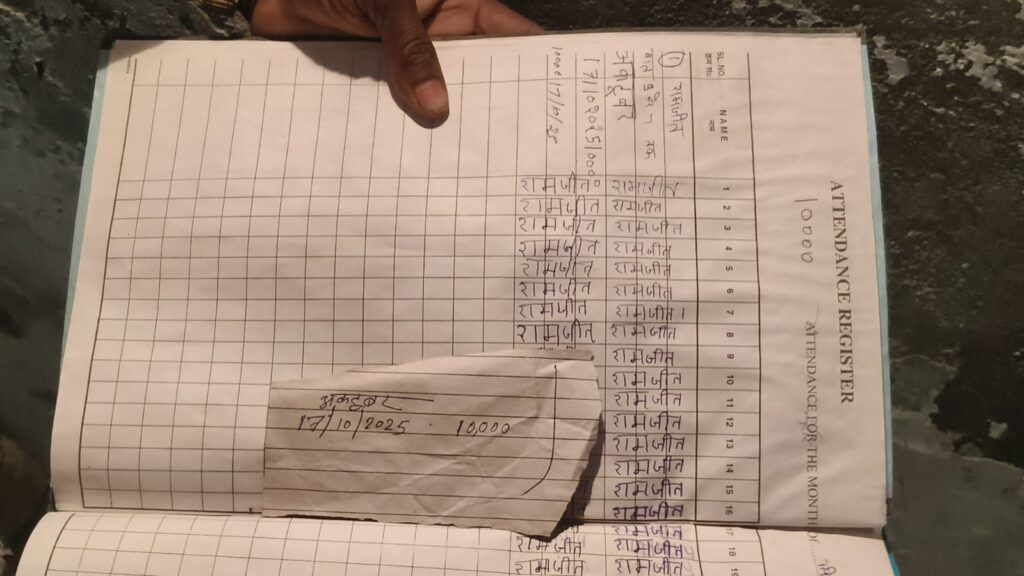 ATTENDANCE REGISTER
10000 ATTENDANCE FOR THE MONTH OF
SL.NO. NAME 1 2 3 4 5 6 7 8 9 10 11 12 13 14 15 16 17 18 19
क्रम सं० नाम
① रामजीत
रामजीत
रामजीत
रामजीत
रामजीत
रामजीत
रामजीत
रामजीत।
रामजीत
रामजीत
रामजीत
रामजीत
रामजीत
रामजीत
रामजीत
रामजीत
रामजीत
रामजीत
रामजीत
रामजीत
17/10/2025/000
रामजीत
रामजीत
रामजीत
रामजीत
रामजीत
रामजीत
रामजीत
रामजीत
रामजीत
रामजीत
10000
अक्टूबर
17/10/2025 . 10,000